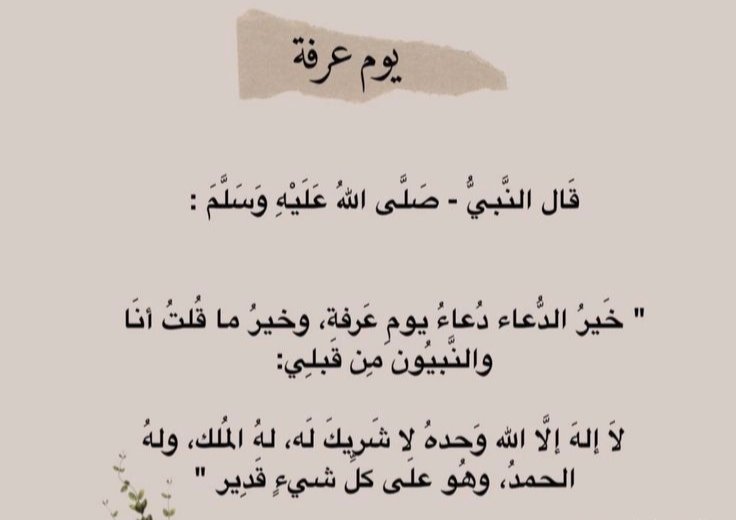 يوم عرفة
قَال النَّبيُّ - صَلَّى اللهُ عَلَيْهِ وَسَلَّمَ :
" خَيرُ الدُّعاء دُعاءُ يومِ عَرفة، وخيرُ ما قُلتُ أنَا
والنَّبيُون مِن قَبلِي:
لاَ إلهَ إلَّا الله وَحدهُ لا شَرِيكَ لَه، لهُ المُلك، ولهُ
الحمدُ، وهُو علَى كلِّ شيءٍ قَدِير "